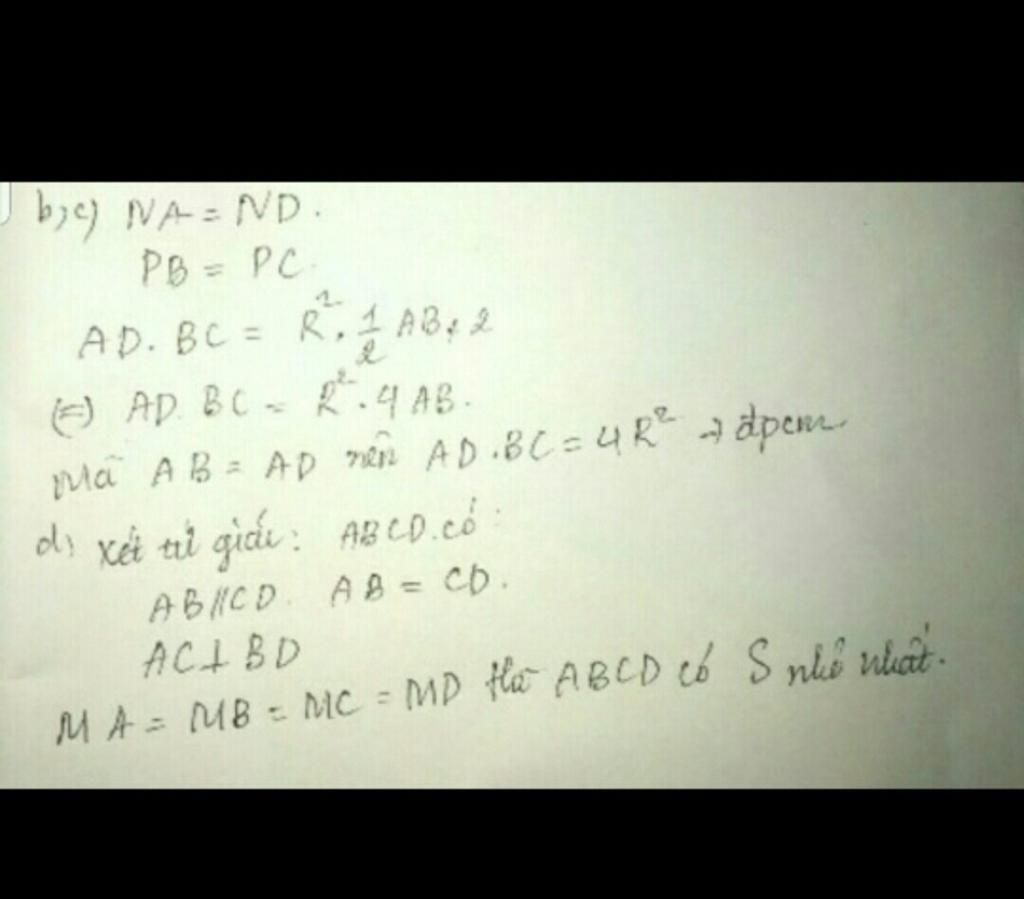 b,c) NA = ND.
PB = PC.
AD. BC = R². 1/2 AB. 2
(=) AD. BC = R². 4 AB.
Mà AB = AD nên AD.BC = 4R² → đpcm
d) Xét tứ giác: ABCD.có:
AB//CD. AB = CD.
AC⊥BD
MA = MB = MC = MD thì ABCD có S nhỏ nhất.